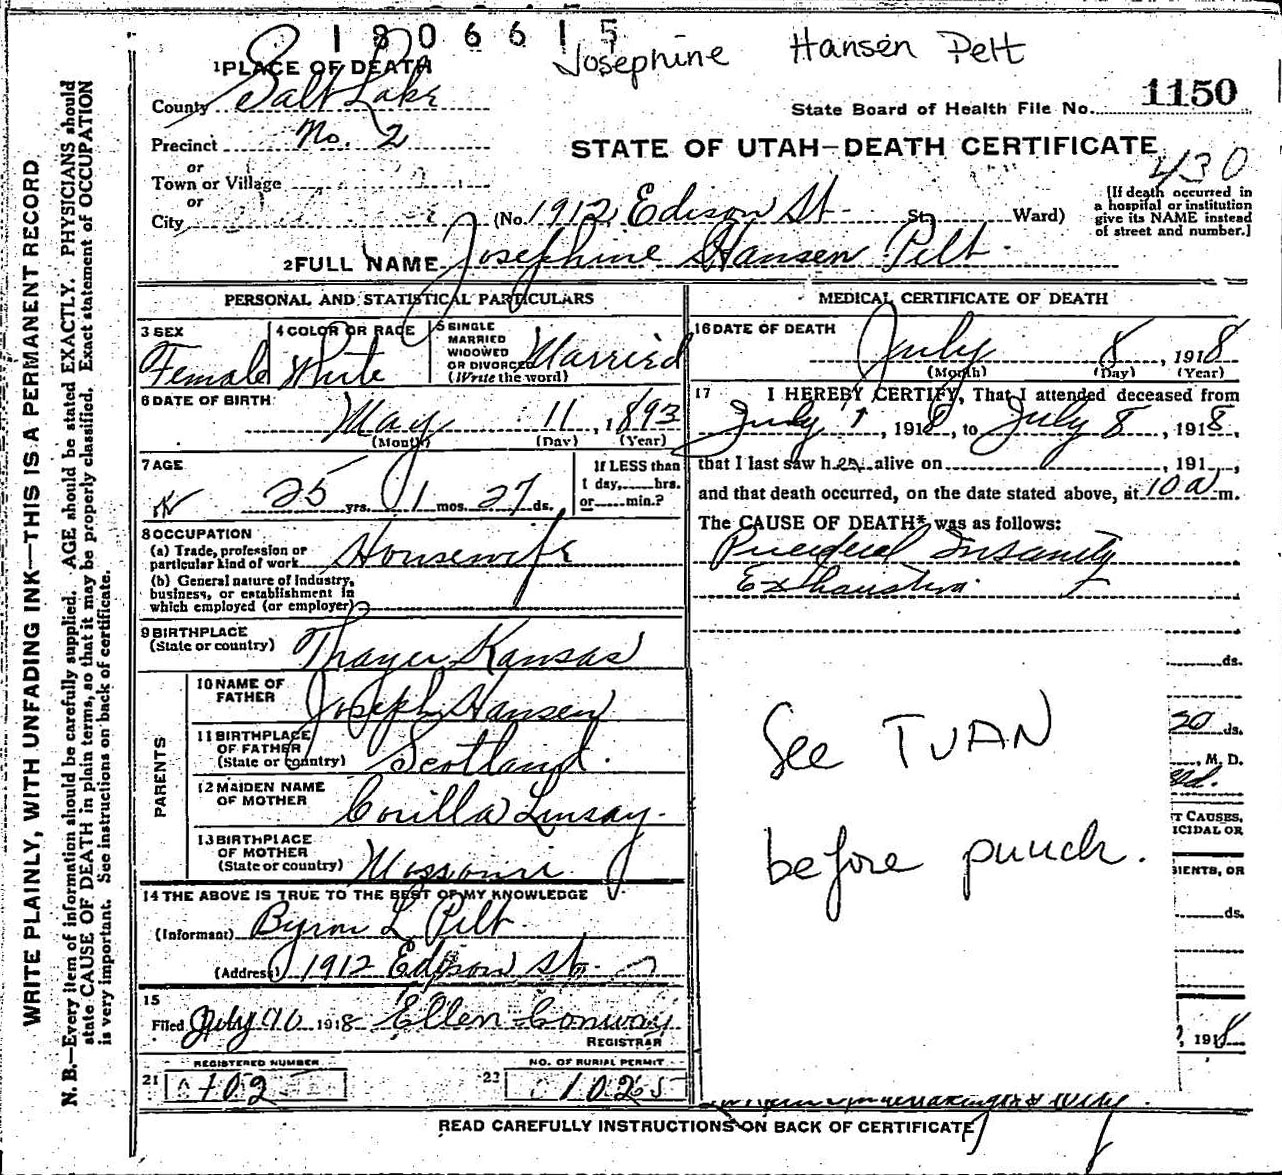 1806615
Josephine Hansen Pelt
1 PLACE OF DEATH
County Salt Lake
State Board of Health File No. 1150
Precinct No. 2
STATE OF UTAH—DEATH CERTIFICATE
430
or
Town or Village
or
City (No. 1912 Edison St. St. Ward)
[If death occurred in
a hospital or institution
give its NAME instead
of street and number.]
2 FULL NAME Josephine Hansen Pelt
PERSONAL AND STATISTICAL PARTICULARS
3 SEX
Female
4 COLOR OR RACE
White
5 SINGLE
MARRIED
WIDOWED
OR DIVORCED
(Write the word)
Married
6 DATE OF BIRTH
May 11, 1893
(Month) (Day) (Year)
7 AGE
25 yrs. 1 mos. 27 ds.
If LESS than
1 day, hrs.
or min.?
8 OCCUPATION
(a) Trade, profession or
particular kind of work Housewife
(b) General nature of Industry,
business, or establishment in
which employed (or employer)
9 BIRTHPLACE
(State or country) Thayer Kansas
PARENTS
10 NAME OF
FATHER Joseph Hansen
11 BIRTHPLACE
OF FATHER
(State or country) Scotland.
12 MAIDEN NAME
OF MOTHER Corilla Linsay.
13 BIRTHPLACE
OF MOTHER
(State or country) Missouri
14 THE ABOVE IS TRUE TO THE BEST OF MY KNOWLEDGE
(Informant) Byron L Pelt
(Address) 1912 Edison St.
15
Filed July 10 1918 Ellen Conway
REGISTRAR
REGISTERED NUMBER
21 702
NO. OF BURIAL PERMIT
22
MEDICAL CERTIFICATE OF DEATH
16 DATE OF DEATH
July 8, 1918
(Month) (Day) (Year)
17 I HEREBY CERTIFY, That I attended deceased from
July 1, 1918, to July 8, 1918,
that I last saw her alive on , 191 ,
and that death occurred, on the date stated above, at 10 a m.
The CAUSE OF DEATH* was as follows:
Puerperal Insanity
Exhaustion
ds.
20 ds.
, M. D.
T CAUSES,
ICIDAL OR
SIENTS, OR
ds.
, 1918
See TUAN
before punch.
READ CAREFULLY INSTRUCTIONS ON BACK OF CERTIFICATE
WRITE PLAINLY, WITH UNFADING INK—THIS IS A PERMANENT RECORD
N. B.—Every item of information should be carefully supplied. AGE should be stated EXACTLY. PHYSICIANS should
state CAUSE OF DEATH in plain terms, so that it may be properly classified. Exact statement of OCCUPATION
is very important. See instructions on back of certificate.